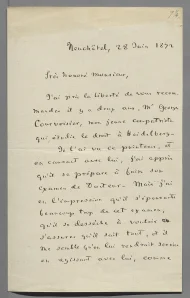 Neuchâtel, 28 Juin 1877
Très honoré Monsieur,
J'ai pris la liberté de vous recom
mander il y a deux ans, Mr George
Courvoisier, mon jeune compatriote
qui étudie le droit à Heidelberg.
Je l'ai vu ce printemps, et
en causant avec lui, j'ai appris
qu'il se prépare à faire son
examen de Docteur. Mais j'ai
eu l'impression qu'il s'épouvante
beaucoup trop de cet examen,
qu'il se dessèche à vouloir
s'assurer qu'il sait tout, et il
me semble qu'on lui rendrait service
en agissant avec lui, comme